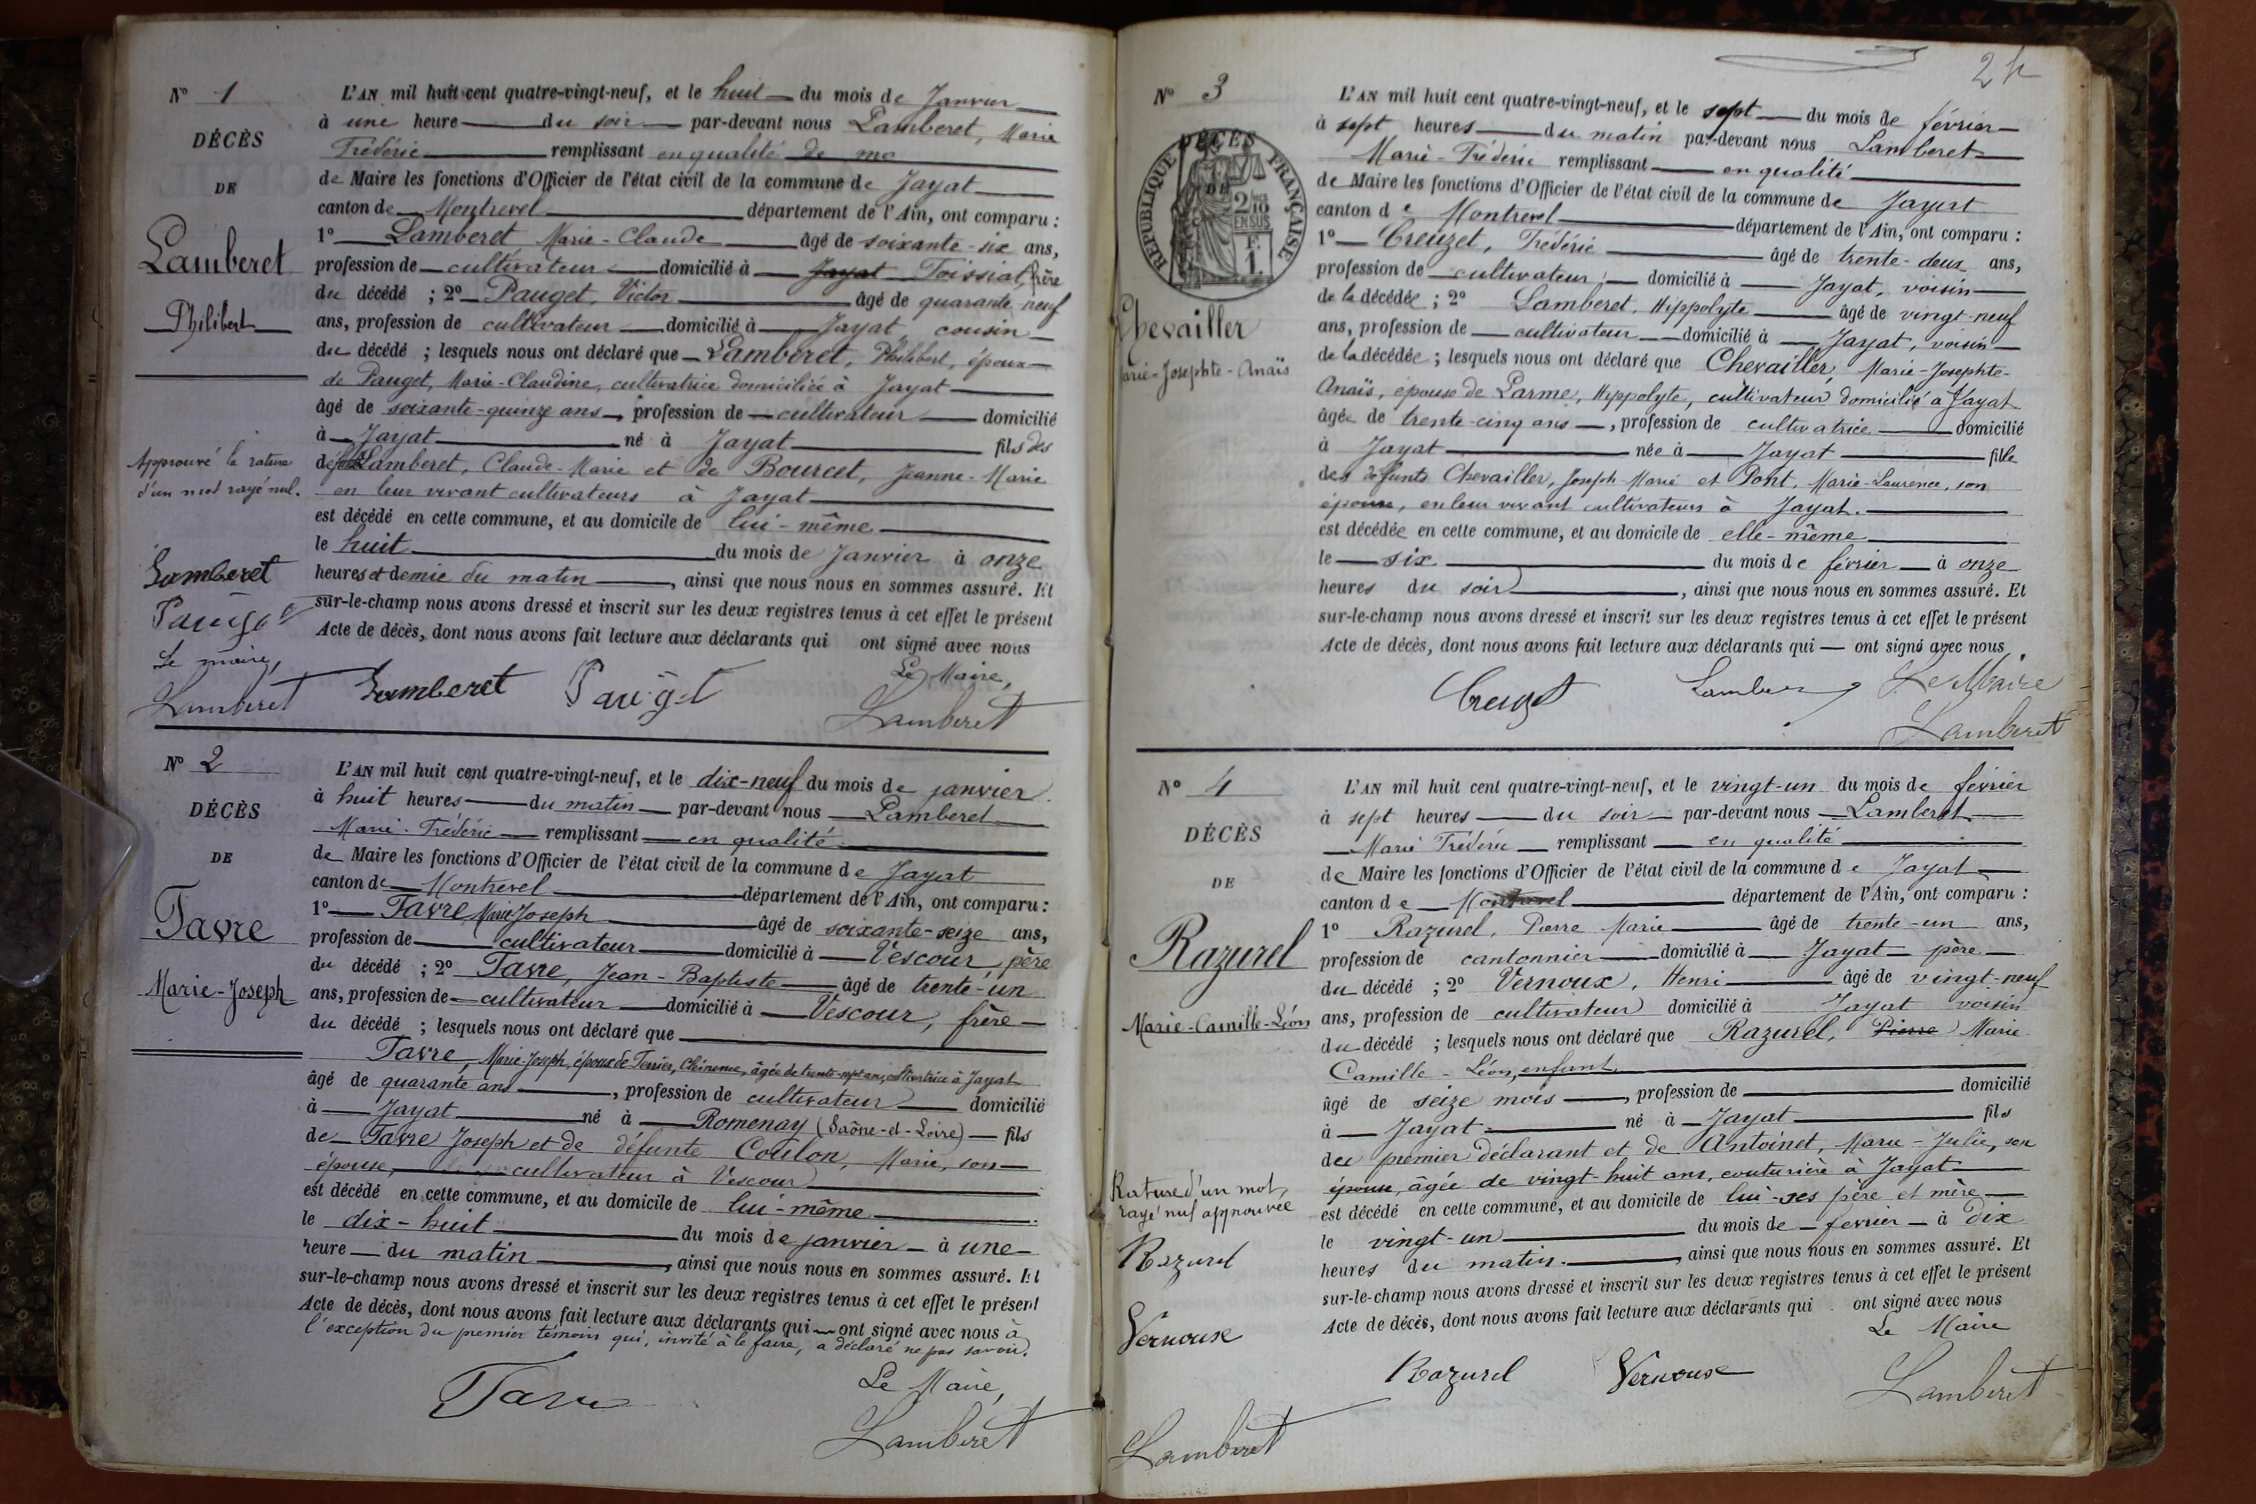 N° 1
DÉCÈS
DE
Lamberet
Philibert
Approuvé la rature
d'un mot rayé nul.
Lamberet
Pauget
Le maire,
Lamberet
L'AN mil huit cent quatre-vingt-neuf, et le huit du mois de Janvier
à une heure du soir par-devant nous Lamberet, Marie
Frédéric remplissant en qualité de ma
de Maire les fonctions d'Officier de l'état civil de la commune de Jayat
canton de Montrevel département de l'Ain, ont comparu :
1° Lamberet, Marie-Claude âgé de soixante-six ans,
profession de cultivateur domicilié à Jayat Foissiat, frère
du décédé ; 2° Pauget, Victor âgé de quarante neuf
ans, profession de cultivateur domicilié à Jayat, cousin
du décédé ; lesquels nous ont déclaré que Lamberet, Philibert, époux
de Pauget, Marie-Claudine, cultivatrice domiciliée à Jayat
âgé de soixante-quinze ans, profession de cultivateur domicilié
à Jayat né à Jayat fils des
défunts Lamberet, Claude-Marie et de Bourcet, Jeanne-Marie
en leur vivant cultivateurs à Jayat
est décédé en cette commune, et au domicile de lui-même
le huit du mois de Janvier à onze
heures et demie du matin, ainsi que nous nous en sommes assuré. Et
sur-le-champ nous avons dressé et inscrit sur les deux registres tenus à cet effet le présent
Acte de décès, dont nous avons fait lecture aux déclarants qui ont signé avec nous
Le Maire,
Lamberet Pauget Lamberet
N° 2
DÉCÈS
DE
Favre
Marie-Joseph
L'AN mil huit cent quatre-vingt-neuf, et le dix-neuf du mois de janvier
à huit heures du matin par-devant nous Lamberet
Marie-Frédéric remplissant en qualité
de Maire les fonctions d'Officier de l'état civil de la commune de Jayat
canton de Montrevel département de l'Ain, ont comparu :
1° Favre Marie Joseph âgé de soixante-seize ans,
profession de cultivateur domicilié à Vescour, père
du décédé ; 2° Favre, Jean-Baptiste âgé de trente-un
ans, profession de cultivateur domicilié à Vescour, frère
du décédé ; lesquels nous ont déclaré que
Favre, Marie-Joseph, époux de Terrier, âgée de trente-sept ans, cultivatrice à Jayat
âgé de quarante ans, profession de cultivateur domicilié
à Jayat né à Romenay (Saône-et-Loire) fils
de Favre Joseph et de défunte Coulon, Marie, son
épouse, cultivateur à Vescour
est décédé en cette commune, et au domicile de lui-même
le dix-huit du mois de janvier à une
heure du matin, ainsi que nous nous en sommes assuré. Et
sur-le-champ nous avons dressé et inscrit sur les deux registres tenus à cet effet le présent
Acte de décès, dont nous avons fait lecture aux déclarants qui ont signé avec nous à
l'exception du premier témoin qui, invité à le faire, a déclaré ne pas savoir.
Le Maire,
Favre Lamberet
N° 3
RÉPUBLIQUE FRANÇAISE
DÉCÈS
DE
2/10 EN SUS
F. 1
Chevailler
Marie-Josephte-Anaïs
L'AN mil huit cent quatre-vingt-neuf, et le sept du mois de février
à sept heures du matin par-devant nous Lamberet
Marie-Frédéric remplissant en qualité
de Maire les fonctions d'Officier de l'état civil de la commune de Jayat
canton de Montrevel département de l'Ain, ont comparu :
1° Creuzet, Frédéric âgé de trente-deux ans,
profession de cultivateur domicilié à Jayat, voisin
de la décédée ; 2° Lamberet, Hippolyte âgé de vingt-neuf
ans, profession de cultivateur domicilié à Jayat, voisin
de la décédée ; lesquels nous ont déclaré que Chevailler, Marie-Josephte-
Anaïs, épouse de Parme, Hippolyte, cultivateur domicilié à Jayat
âgée de trente-cinq ans, profession de cultivatrice domicilié
à Jayat née à Jayat fille
des défunts Chevailler, Joseph-Marie et Pont, Marie-Laurence, son
épouse, en leur vivant cultivateurs à Jayat.
est décédée en cette commune, et au domicile de elle-même
le six du mois de février à onze
heures du soir, ainsi que nous nous en sommes assuré. Et
sur-le-champ nous avons dressé et inscrit sur les deux registres tenus à cet effet le présent
Acte de décès, dont nous avons fait lecture aux déclarants qui ont signé avec nous
Creuzet Lamberet Le Maire
Lamberet
N° 4
DÉCÈS
DE
Razurel
Marie-Camille-Léon
Rature d'un mot,
rayé nul approuvée
Razurel
Vernoux
Lamberet
L'AN mil huit cent quatre-vingt-neuf, et le vingt-un du mois de février
à sept heures du soir par-devant nous Lamberet
Marie Frédéric remplissant en qualité
de Maire les fonctions d'Officier de l'état civil de la commune de Jayat
canton de Montrevel département de l'Ain, ont comparu :
1° Razurel, Pierre Marie âgé de trente-un ans,
profession de cantonnier domicilié à Jayat père
du décédé ; 2° Vernoux, Henri âgé de vingt-neuf
ans, profession de cultivateur domicilié à Jayat voisin
du décédé ; lesquels nous ont déclaré que Razurel, Pierre Marie
Camille-Léon, enfant
âgé de seize mois, profession de domicilié
à Jayat né à Jayat fils
du premier déclarant et de Antoinet, Marie-Julie, son
épouse, âgée de vingt-huit ans, couturière à Jayat
est décédé en cette commune, et au domicile de lui-ses père et mère
le vingt-un du mois de février à dix
heures du matin, ainsi que nous nous en sommes assuré. Et
sur-le-champ nous avons dressé et inscrit sur les deux registres tenus à cet effet le présent
Acte de décès, dont nous avons fait lecture aux déclarants qui ont signé avec nous
Le Maire
Razurel Vernoux Lamberet